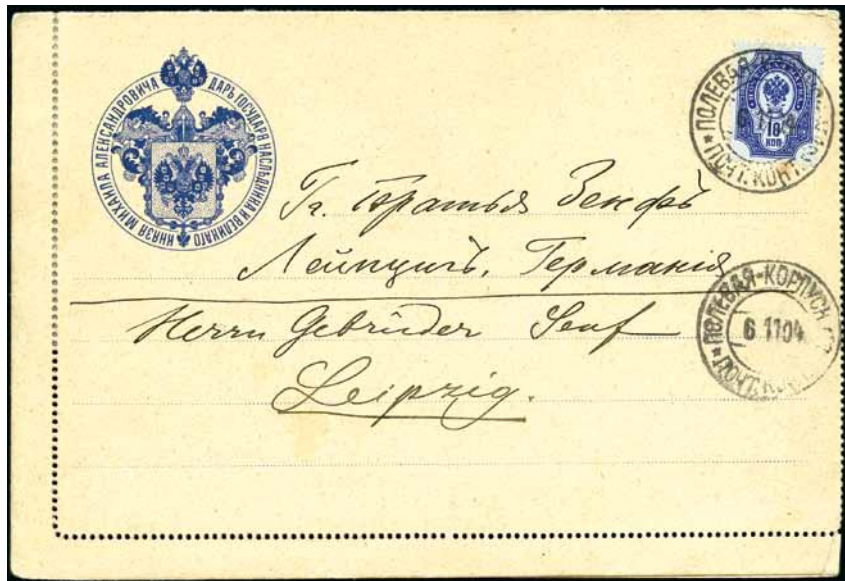 ДАРЪ ГОСУДАРЯ НАСЛѢДНИКА И ВЕЛИКАГО КНЯЗЯ МИХАИЛА АЛЕКСАНДРОВИЧА
ПОЛЕВАЯ
6 11 04
ПОЧТ. КОНТ.
10
КОП
Гг. Братья Зенфъ
Лейпцигъ, Германія
Herrn Gebrüder Senf
Leipzig.
ПОЛЕВАЯ-КОРПУСН
6 11 04
ПОЧТ. КОН